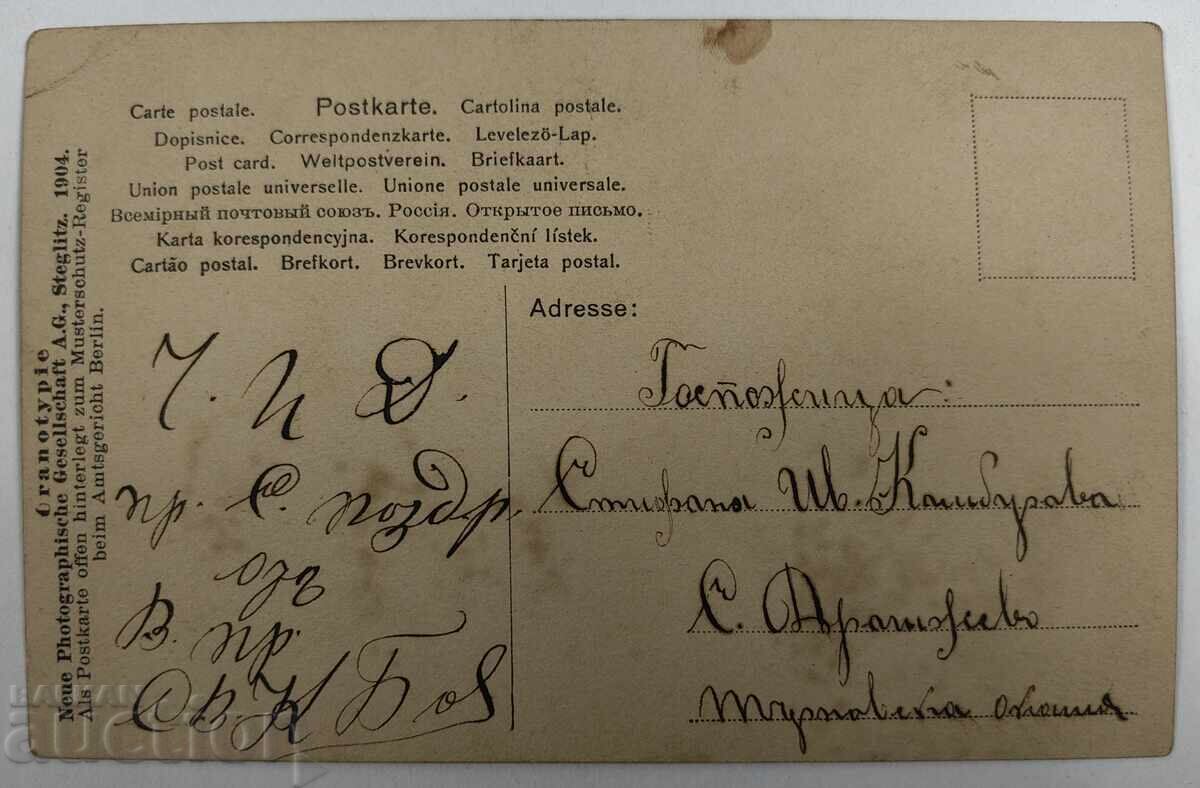 Carte postale. Postkarte. Cartolina postale.
Dopisnice. Correspondenzkarte. Levelezö-Lap.
Post card. Weltpostverein. Briefkaart.
Union postale universelle. Unione postale universale.
Всемірный почтовый союзъ. Россія. Открытое письмо.
Karta korespondencyjna. Korespondenční lístek.
Cartão postal. Brefkort. Brevkort. Tarjeta postal.
Oranotypie
Neue Photographische Gesellschaft A.G., Steglitz. 1904.
Als Postkarte offen hinterlegt zum Musterschutz-Register
beim Amtsgericht Berlin.
Ч. И Д.
пр. С. поздр.
отъ
В. пр.
Св. К Боя
Adresse:
Госпожица
Стифана Ив. Камбурова
С. Драгижево
Търновска околия
БАЛКАН
auction